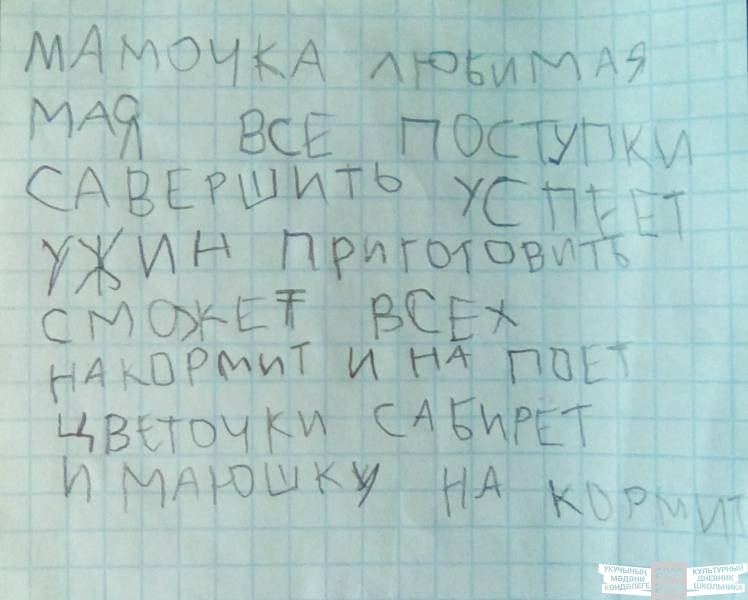 МАМОЧКА ЛЮБИМАЯ
МАЯ ВСЕ ПОСТУПКИ
САВЕРШИТЬ УСПЕЕТ
УЖИН ПРИГОТОВИТЬ
СМОЖЕТ ВСЕХ
НАКОРМИТ И НА ПОЕТ
ЦВЕТОЧКИ САБИРЕТ
И МАЮШКУ НА КОРМИТ
УКУЧЫНЫҢ МӘДӘНИ КӨНДӘЛЕГЕ
КУЛЬТУРНЫЙ ДНЕВНИК ШКОЛЬНИКА